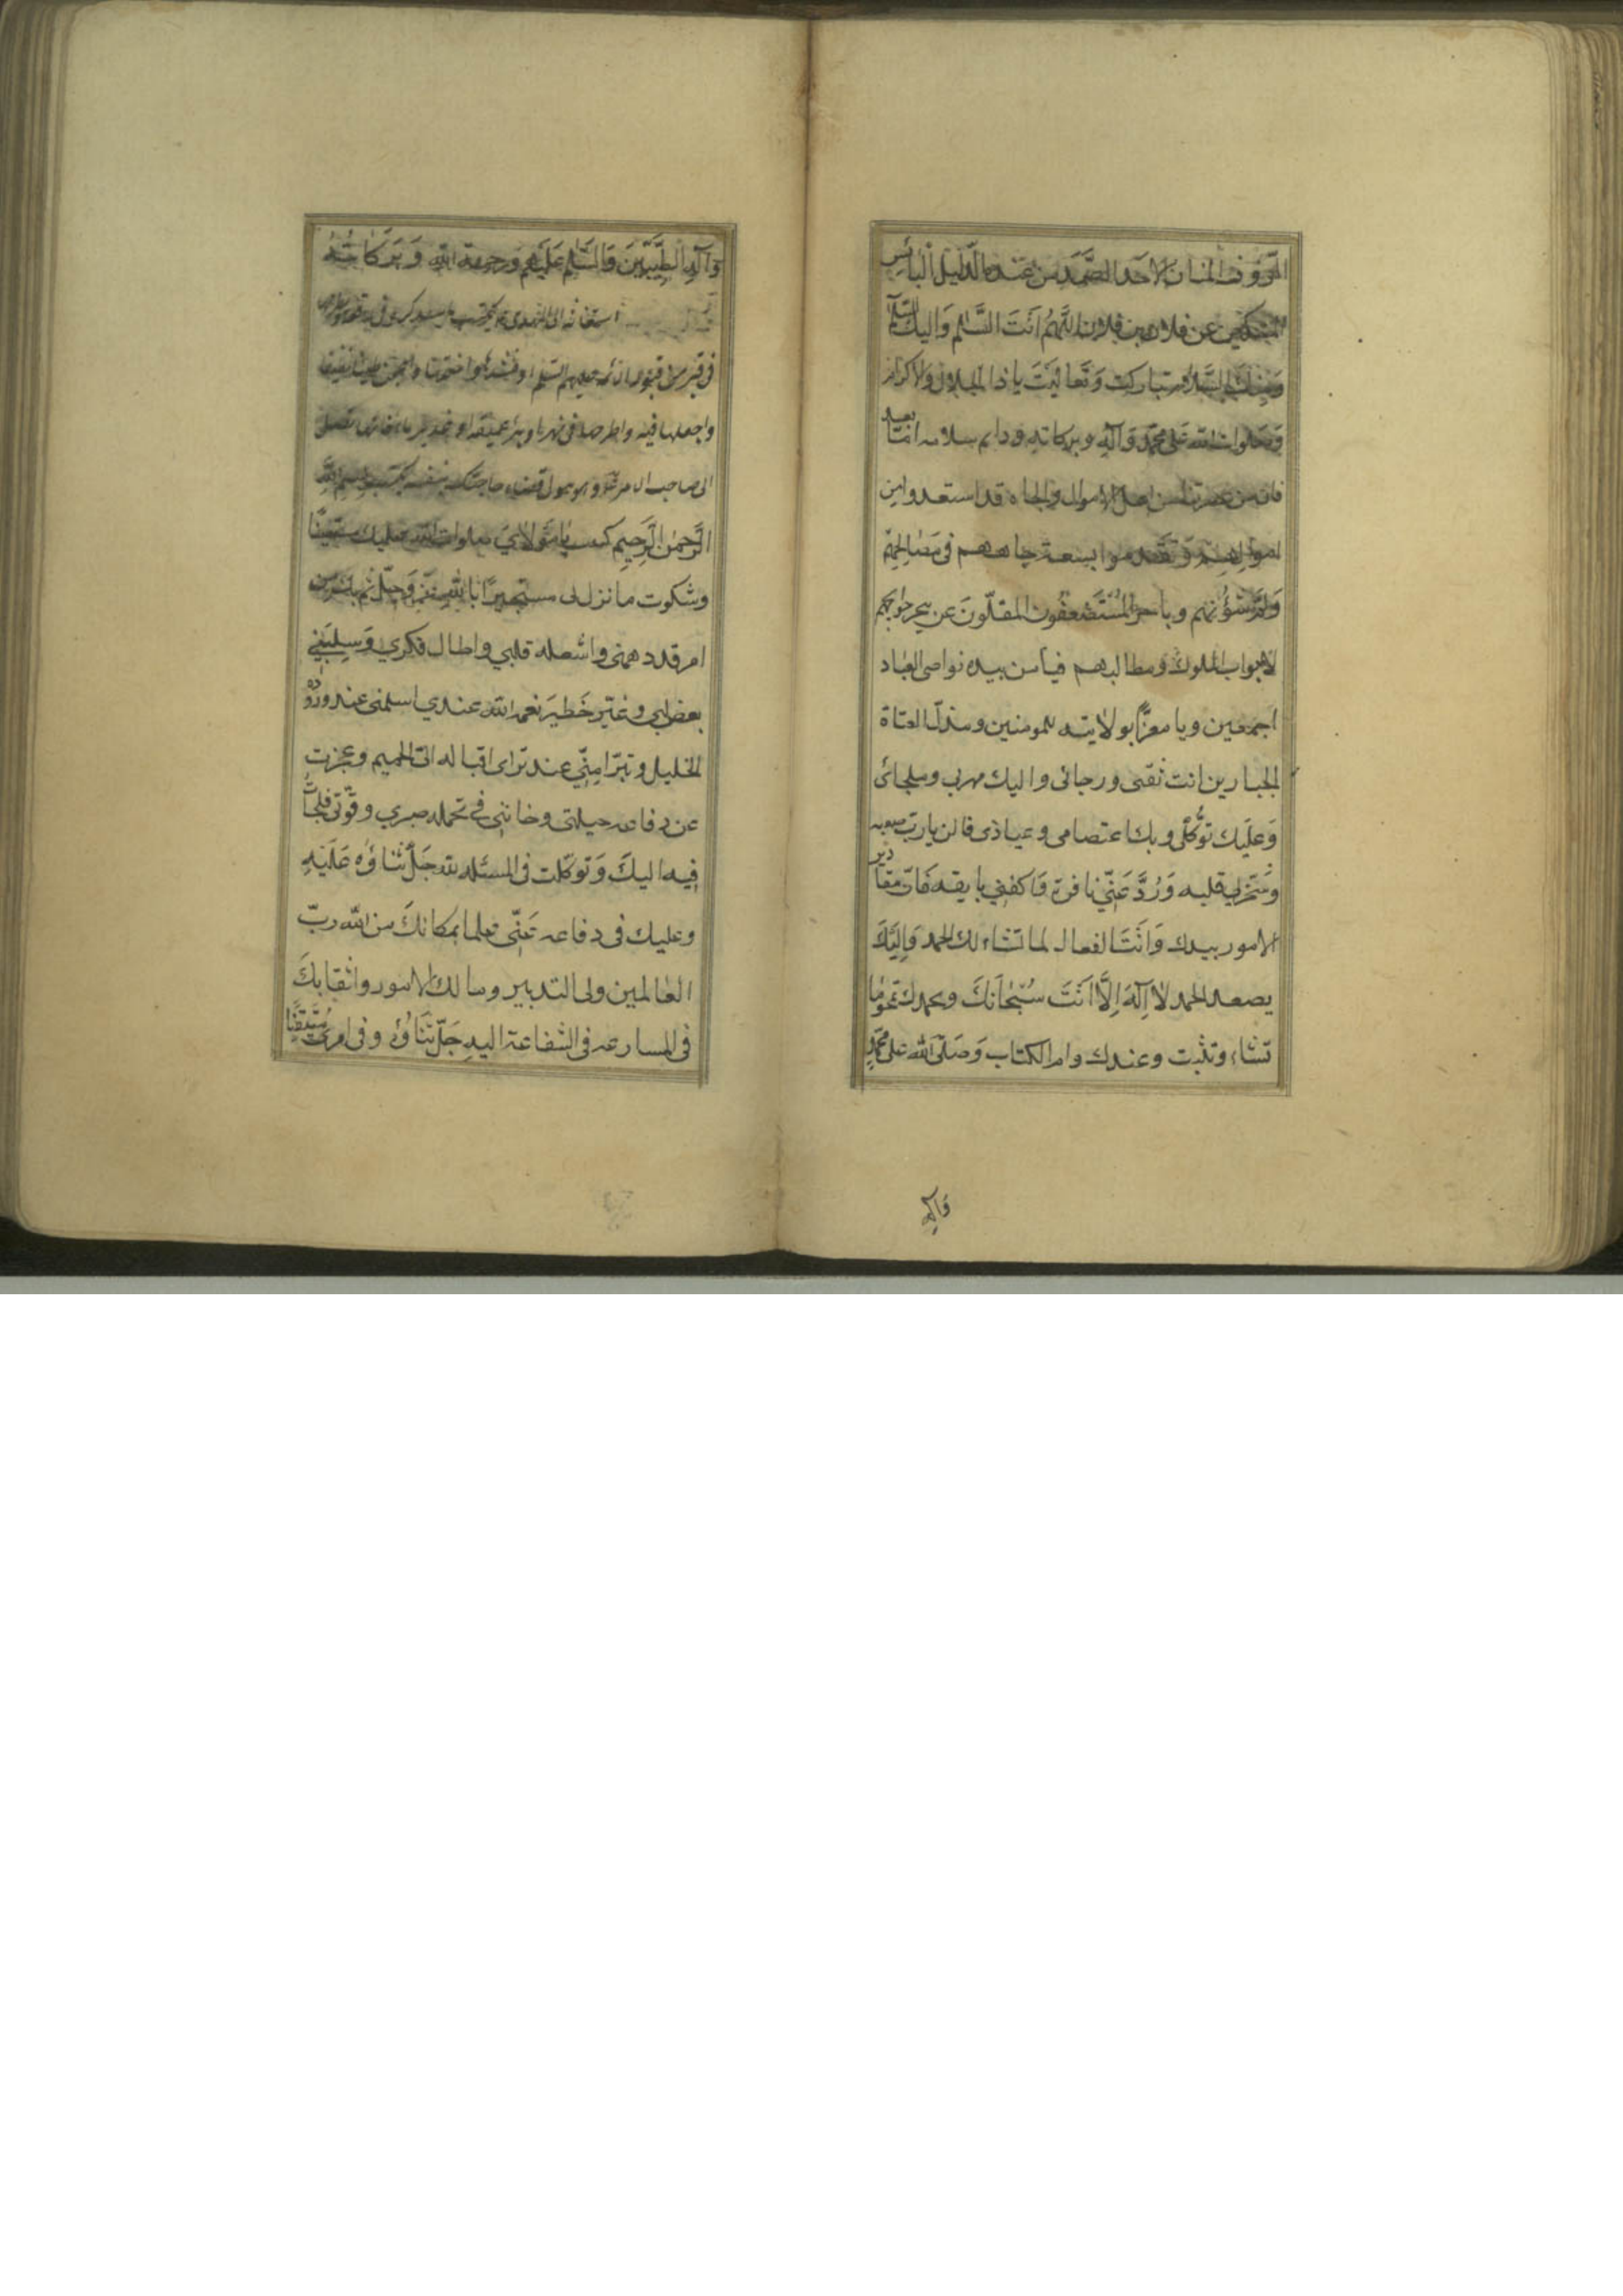 الرؤوف المنان الاحد الصمد من عبده الذليل البائس
المستكين عن فلان بن فلان اللهم اَنتَ السَّلٰم وَاليك السلام
وَمِنكَ السلام تباركت وَتَعاليَتَ ياذا الجلال والاكرام
وَصَلوات الله عَلى محمّد وَآلِهِ وبركاته ودايم سلامه امّا بعد
فان من بحضرتنا من اهل الاموال والجاه قد استعدوا من
اموالهم وَتقدموا بسعة جاههم فى مَصٰالحِهِم
وَلمّ شؤُنهم وتاخر المُسْتَضعَفُون المقلّونَ عن تنجز حوايجهم
لابواب الملوك ومطالبهم فيا من بيده نواصى العباد
اجمعين ويا معزًّا بولايته للمومنين ومذلّ العتاة
الجبارين انت ثقتى ورجائى واليك مهربى وملجائى
وَعلَيك توكُّلى وبك اعتصامى وعياذى فالن يارب صعوبه
وَسَخّرلي قلبه وَرُدَّ عَنِّي نافره وَاكفني بايقه فَانّ مقادير
الامور بيدك وَانتَ الفعال لما تشاء لك الحمد وَاِليَكَ
يصعد الحمد لاٰ اِلٓهَ اِلَّا اَنتَ سُبْحٰانَكَ وبحمدك تَمحُو مٰا
تشاء وتثبت وعندك وام الكتاب وَصَلّى الله على محمّدٍ
وَآلِه
وَآلِهِ الطيِّبّينَ وَالسَّلٰم عَليَهِم وَرحمة الله وَبَرَكٰاتُهُ
استغاثه الى المهدى ع يكتب ما سنذكره فى رقعه وتطرح
فى قبر من قبور الائمه عليهم السّلم او فشدها واختمها واعجن طينا نظيفا
واجعلها فيه واطرحها فى نهر او بئر عميقه او غدير ماء فانها تصل
الى صاحب الامر ع وهو يتولى قضاء حاجتك بنفسه يكتب بسم الله
الرَّحمٰن الرَّحِيمِ كتبت يٰا مَولاٰيَ صلوات الله عليك مستغيثًا
وشكوت ما نزل بى مستجيرًا بالله عزّ وَجلّ ثم بك من
امر قد دهمنى واشغله قلبي واطال فكري وَسلبَني
بعض لبي وغيّر خَطيرَ نعمه الله عندي اسلمنى عند وروده
الخليل وتبرّا مِنّي عند تراى اقباله الىّ الحميم وعجزت
عن دفاعه حيلتى وخاننى في تحمله صبري وقوّتى فلجأتُ
فيه اليكَ وَتوكّلت فى المسئله لله جَلّ ثَناؤُه عَلَيَهِ
وعليك فى دفاعه عَنّي علما بمكانكَ من الله ربّ
العٰالمين ولى التدبير ومالك الامور واثقا بكَ
فى المسارعه فى الشفاعة اليه جَلّ ثَنَاؤُهُ وفى امرى مُتَيَقّنًا